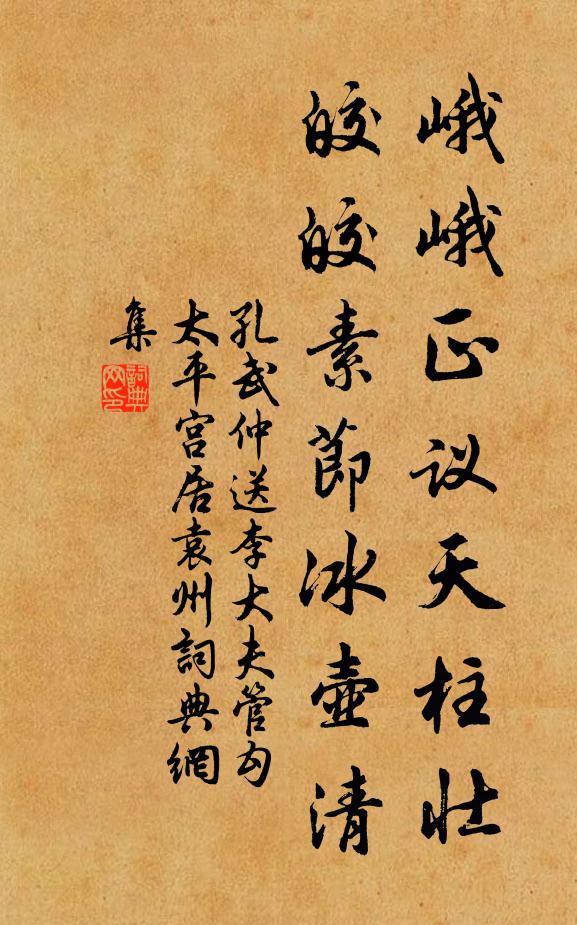 峨峨正议天柱壮
皎皎素節冰壺清
孔武仲送李大夫管勾
太平宫居袁州詞典網
集
詞典
网印